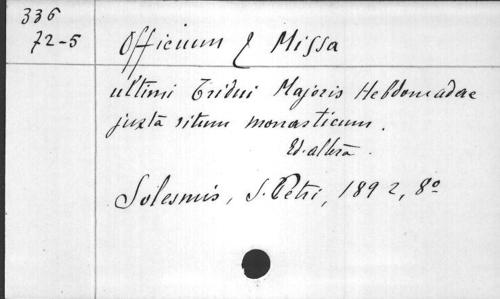 336
72-5
Officium & Missa
ultimi Tridui Majoris Hebdomadae
juxta ritum monasticum.
Ed. altera.
Solesmis, S. Petri, 1892, 8º